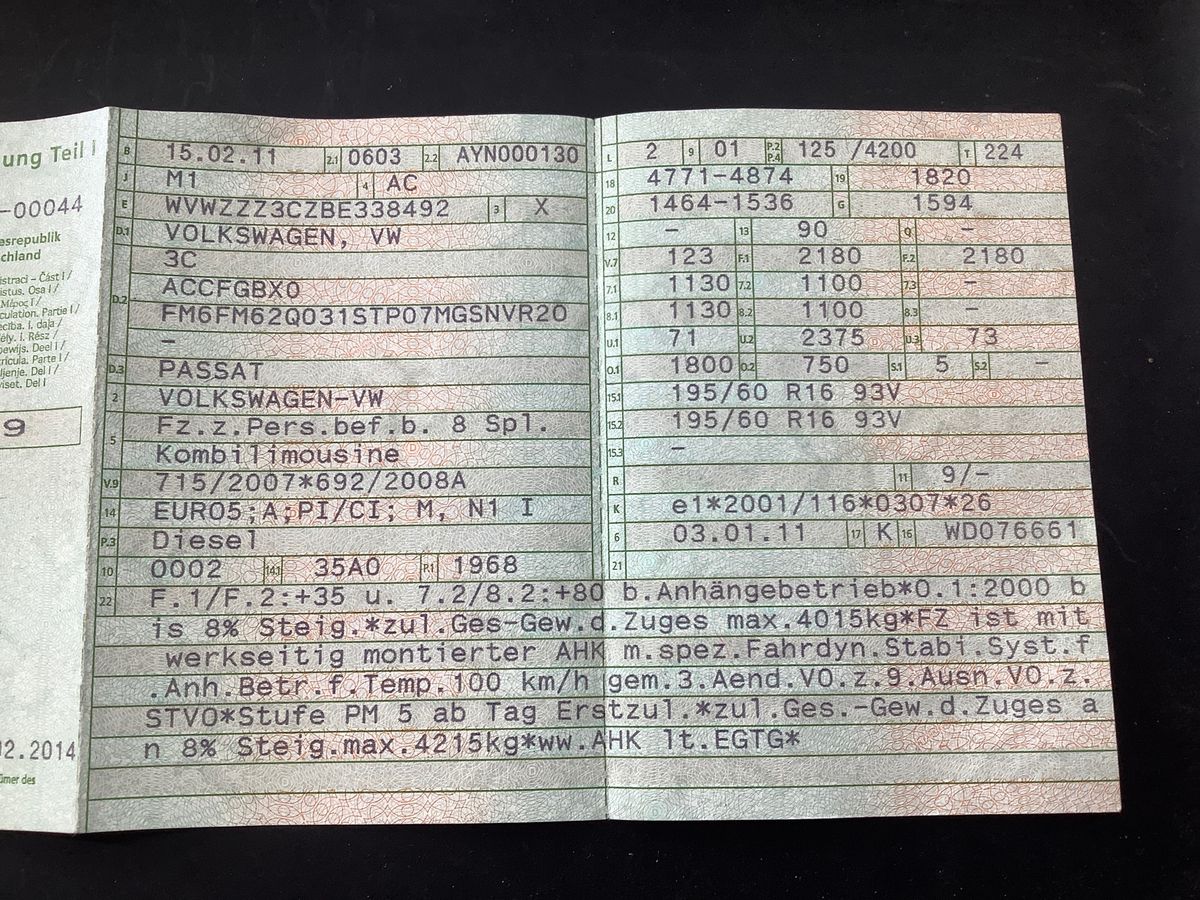 ung Teil I
-00044
esrepublik
chland
istraci - Část I /
istus. Osa I /
Μέρος I /
culation. Partie I /
ecība. I. daļa /
ély. I. Rész /
bewijs. Deel I /
trícula. Parte I /
ljenje. Del I /
viset. Del I
9
02.2014
ümer des
B 15.02.11 2.1 0603 2.2 AYN000130
J M1 4 AC
E WVWZZZ3CZBE338492 3 X
D.1 VOLKSWAGEN, VW
D.2 3C
ACCFGBX0
FM6FM62Q031STP07MGSNVR20
-
D.3 PASSAT
2 VOLKSWAGEN-VW
5 Fz.z.Pers.bef.b. 8 Spl.
Kombilimousine
V.9 715/2007*692/2008A
14 EURO5;A;PI/CI; M, N1 I
P.3 Diesel
10 0002 14.1 35A0 P.1 1968
L 2 9 01 P.2 P.4 125 /4200 T 224
18 4771-4874 19 1820
20 1464-1536 G 1594
12 - 13 90 Q -
V.7 123 F.1 2180 F.2 2180
7.1 1130 7.2 1100 7.3 -
8.1 1130 8.2 1100 8.3 -
U.1 71 U.2 2375 U.3 73
O.1 1800 O.2 750 S.1 5 S.2 -
15.1 195/60 R16 93V
15.2 195/60 R16 93V
15.3 -
R 11 9/-
K e1*2001/116*0307*26
6 03.01.11 17 K 16 WD076661
21
22 F.1/F.2:+35 u. 7.2/8.2:+80 b.Anhängebetrieb*O.1:2000 b
is 8% Steig.*zul.Ges-Gew.d.Zuges max.4015kg*FZ ist mit
werkseitig montierter AHK m.spez.Fahrdyn.Stabi.Syst.f
.Anh.Betr.f.Temp.100 km/h gem.3.Aend.VO.z.9.Ausn.VO.z.
STVO*Stufe PM 5 ab Tag Erstzul.*zul.Ges.-Gew.d.Zuges a
n 8% Steig.max.4215kg*ww.AHK lt.EGTG*